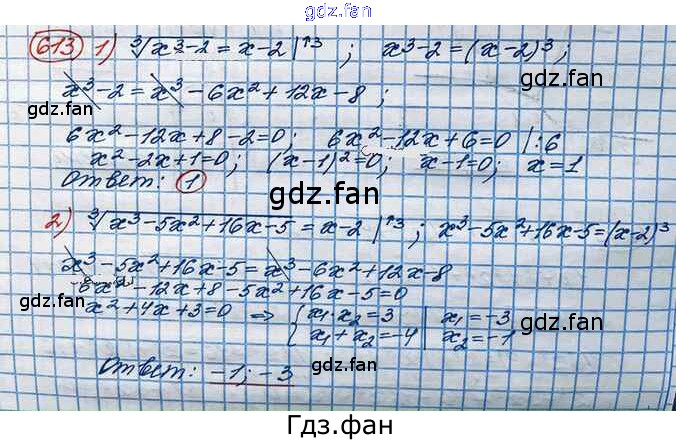 gdz.fan
613 1) ∛x³-2 = x-2 |↑3 ; x³-2=(x-2)³;
gdz.fan gdz.fan
x³-2 = x³-6x²+12x-8 ;
gdz.fan
6x²-12x+8-2=0; 6x²-12x+6=0 |:6
x²-2x+1=0; (x-1)²=0; x-1=0; x=1
Ответ: 1
gdz.fan
2) ∛x³-5x²+16x-5 = x-2 |↑3 ; x³-5x²+16x-5=(x-2)³
x³-5x²+16x-5=x³-6x²+12x-8
6x²-12x+8-5x²+16x-5=0
gdz.fan
x²+4x+3=0 ⇒ { x₁·x₂=3 | x₁=-3
x₁+x₂=-4 | x₂=-1
gdz.fan
gdz.fan
Ответ: -1; -3
Гдз.фан